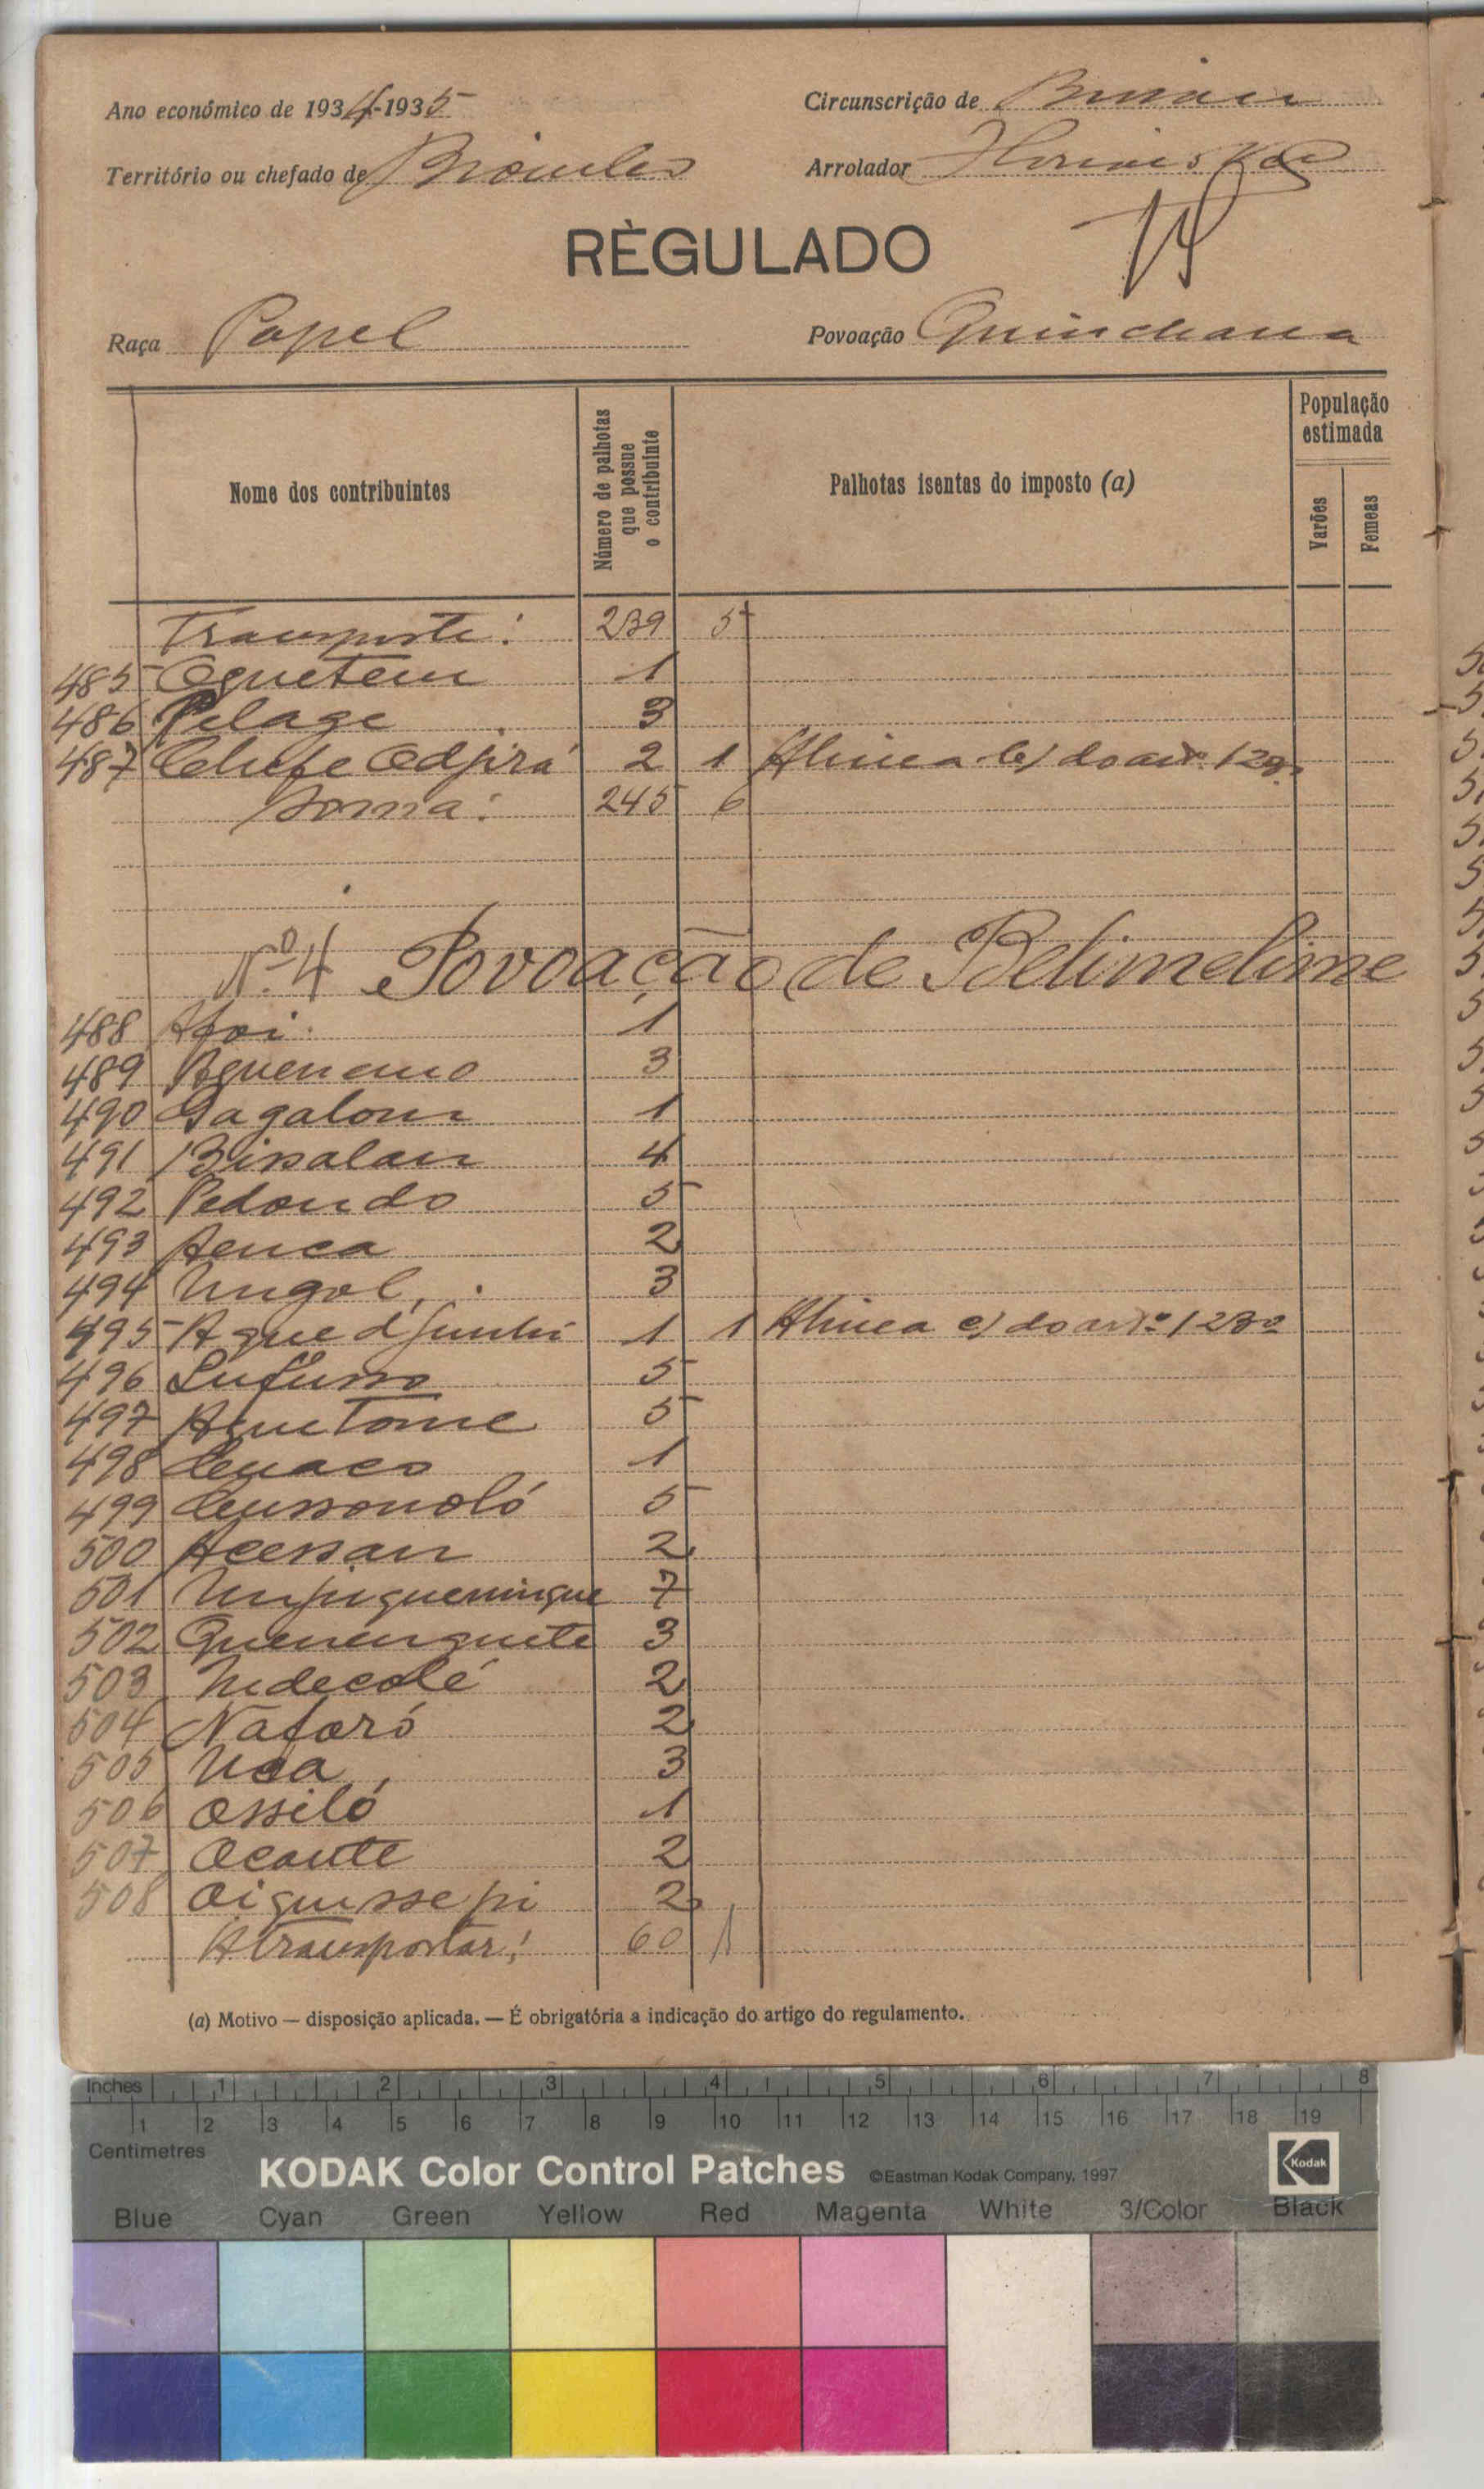 Ano económico de 1934-1935
Circunscrição de Bissau
Território ou chefado de
Arrolador
RÈGULADO
Raça Papel
Povoação Quinchana
Nome dos contribuintes
Número de palhotas que possue o contribuinte
Palhotas isentas do imposto (a)
População estimada
Varões
Femeas
Transporte: 239 5
485 Oquetem 1
486 Pelage 3
487 Chefe Odjirá 2 1 Alinea b) do artº 123º
Soma: 245 6
Nº 4 Povoação de Belimelime
488 Afoi 1
489 3
490 Gagalom 1
491 Bissalan 4
492 Pedondo 5
493 Aenca 2
494 Ungol 3
495 Aque djunhi 1 1 Alinea c) do artº 123º
496 Lufusso 5
497 Aquetome 5
498 1
499 Cussonoló 5
500 Acessan 2
501 7
502 3
503 Indecolé 2
504 Naforó 2
505 3
506 Ossiló 1
507 Ocante 2
508 Oiguissepi 2
A transportar: 60 1
(a) Motivo — disposição aplicada. — É obrigatória a indicação do artigo do regulamento.
Inches 1 2 3 4 5 6 7 8
1 2 3 4 5 6 7 8 9 10 11 12 13 14 15 16 17 18 19
Centimetres
KODAK Color Control Patches ©Eastman Kodak Company, 1997 Kodak
Blue Cyan Green Yellow Red Magenta White 3/Color Black